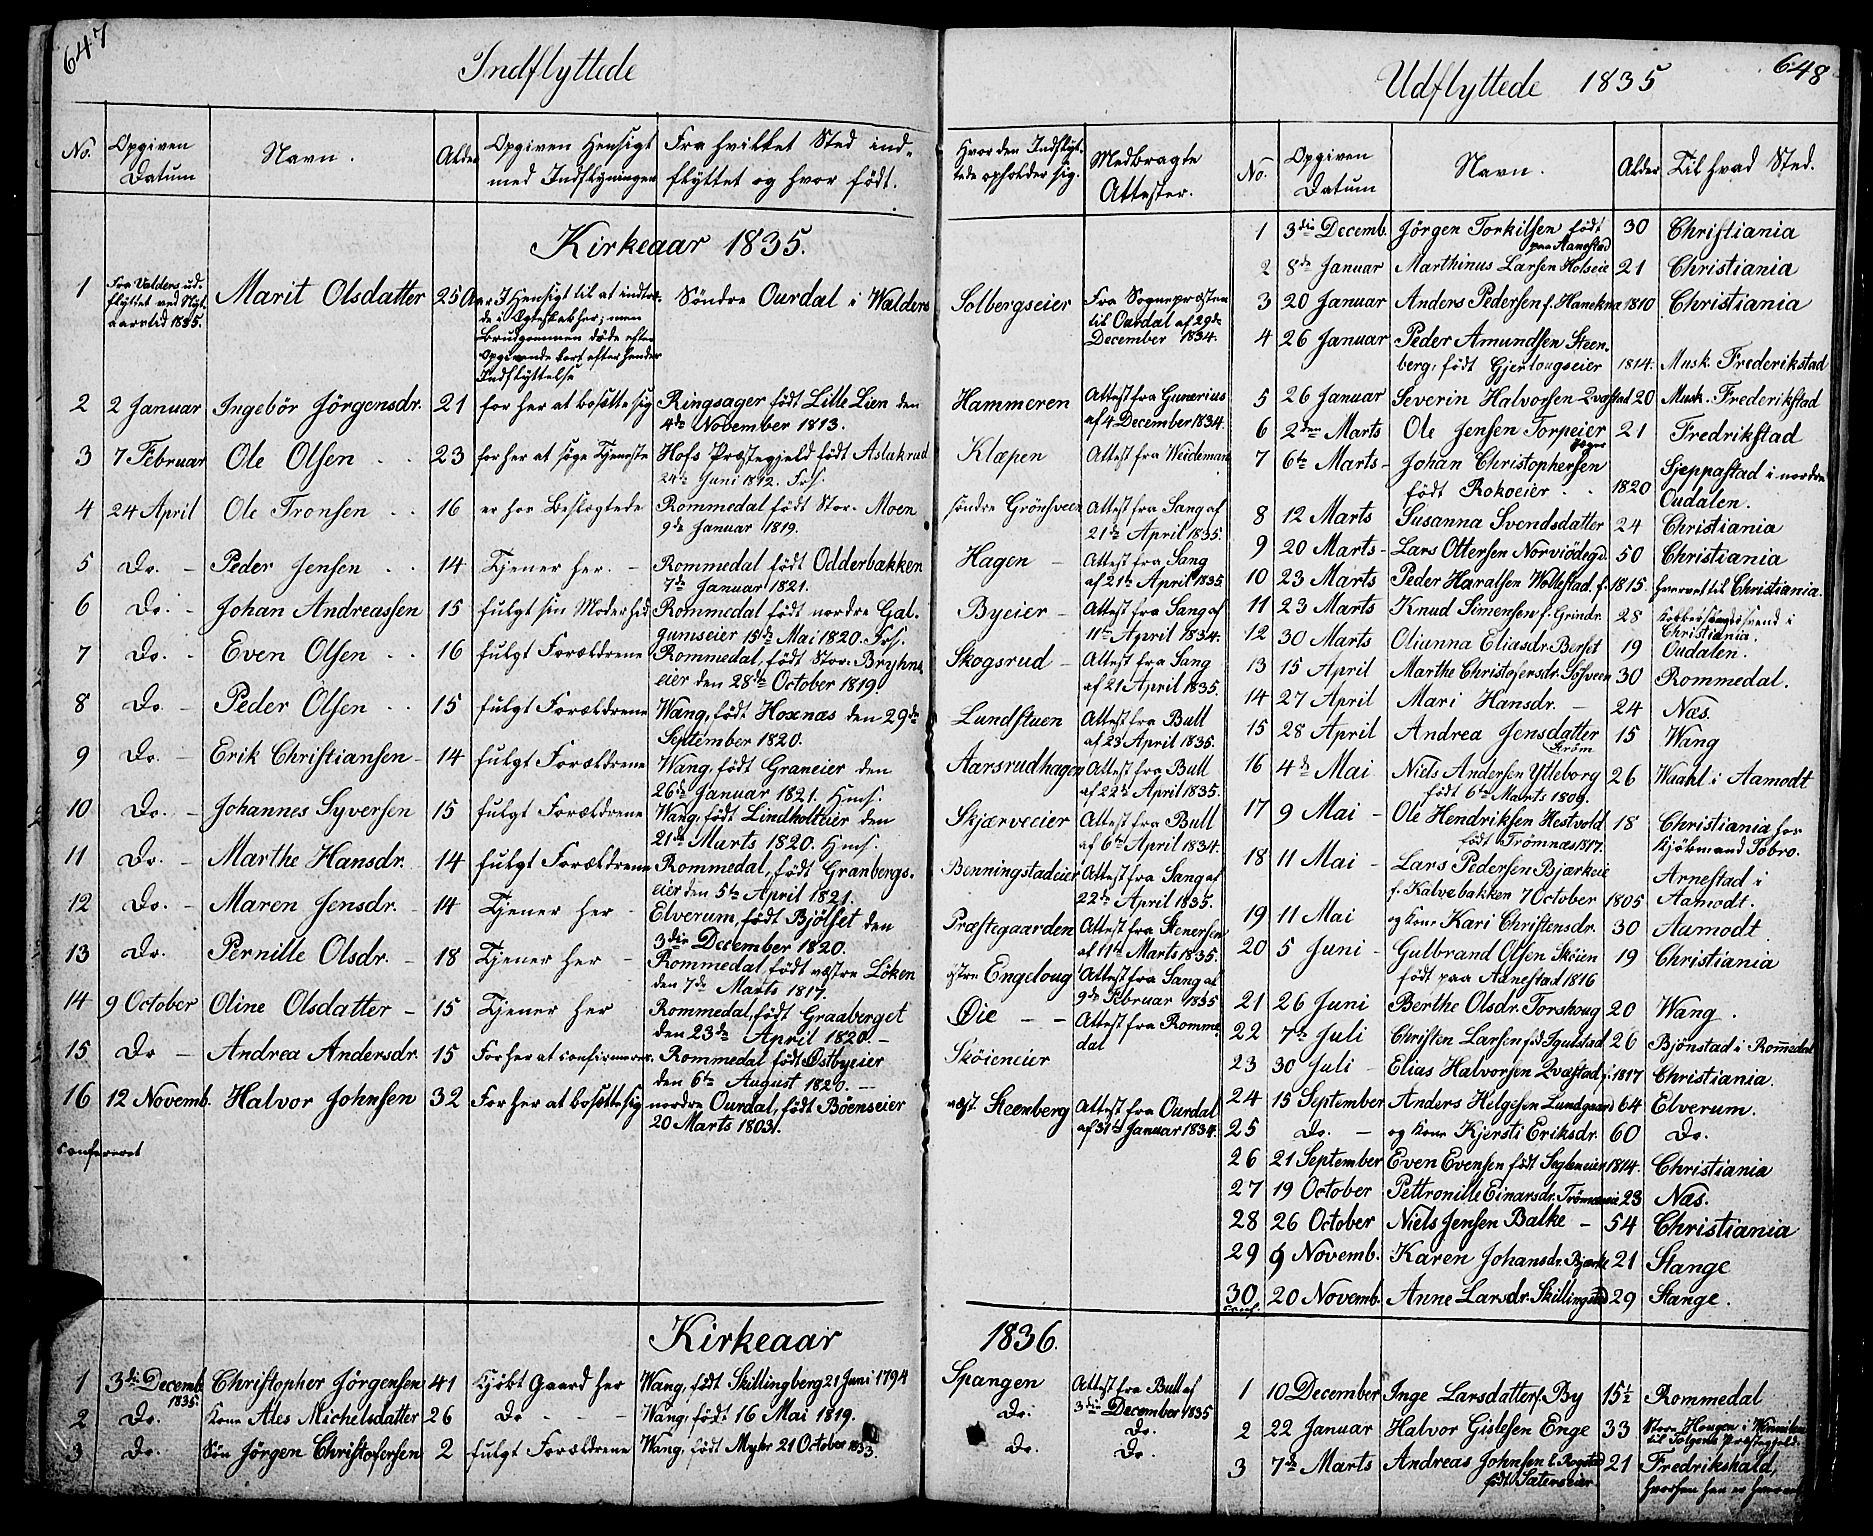 647
Indflyttede
No. Opgiven Datum Navn. Alder Opgiven Hensigt med Indflyningen Fra hvilket Sted indflyttet og hvor født. Hvor den Indflyttede opholder sig. Medbragte Attester.
Kirkeaar 1835.
1 Fra Valders udflyttet ved Nytaarstid 1835. Marit Olsdatter 25 Aar I Hensigt til at indtræde i Ægteskab her; men Brudgommen døde efter Opgivende kort efter hendes Indflyttelse Søndre Ourdal i Walders Solbergseier Fra Sognepræsten til Ourdal af 29de December 1834.
2 2 Januar Ingebör Jörgensdr. 21 for her at bosætte sig Ringsager født Lille Lien den 4de November 1813. Hammeren Attest fra Gunerius af 4 December 1834.
3 7 Februar Ole Olsen 23 for her at søge Tjeneste Hofs Præstegjeld født Aslakrud 24de Juni 1812. Klæpen Attest fra Weideman
4 24 April Ole Tronsen 16 er hos Beslegtede Rommedal født Stor-Moen 9de Januar 1819. søndre Grönsveen Attest fra Sang af 21de April 1835.
5 Do. Peder Jensen 14 Tjener her. Rommedal født Odderbakken 7de Januar 1821. Hagen Attest fra Sang af 21de April 1835
6 Do. Johan Andreassen 15 fulgt sin Moder hid Rommedal født nordre Galgumseier 15de Mai 1820. Byeier Attest fra Sang af 11te April 1834.
7 Do. Even Olsen 16 fulgt Forældrene Rommedal, født Stor-Bryhnseier den 28de October 1819 Skogsrud Attest fra Sang af 21 April 1835.
8 Do. Peder Olsen 15 fulgt Forældrene Wang, født Hoxnæs den 29de September 1820. Lundstuen Attest fra Bull af 23 April 1835.
9 Do. Erik Christiansen 14 fulgt Forældrene Wang, født Graneier den 26de Januar 1821. Aarsrudhagen Attest fra Bull af 22de April 1835.
10 Do. Johannes Syversen 15 fulgt Forældrene Wang, født Lindholteier den 21de Marts 1820. Skjærveeier Attest fra Bull af 6te April 1834.
11 Do. Marthe Hansdr. 14 fulgt Forældrene Rommedal, født Granbergseier den 5te April 1821. Benningstadeier Attest fra Sang af 22de April 1835.
12 Do. Maren Jensdr. 14 Tjener her Elverum, født Bjölset den 3die December 1820. Præstegaarden Attest fra Stenersen af 11te Marts 1835.
13 Do. Pernille Olsdr. 18 Tjener her Rommedal, født væstre Löken den 7de Marts 1817. østre Engeloug Attest fra Sang af 9de Februar 1835
14 9 October Oline Olsdatter 15 Tjener her Rommedal, født Graaberget den 23de April 1820. Øie Attest fra Rommedal
15 Do Andrea Andersdr 15 For her at confirmeres. Rommedal født Østbyeier den 6te August 1820. Skøieneier
16 12 Novemb. Halvor Johnsen 32 For her at bosætte sig nordre Ourdal, født Böenseier 20 Marts 1803. væst. Steenberg Attest fra Ourdal af 31te Januar 1834.
confereret
Kirkeaar 1836.
1 3die Decemb 1835. Christopher Jørgensen 41 Kjöbt Gaard her Wang, født Skillingberg 21 Juni 1794 Spangen Attest fra Bull af 3die December 1835
2 Do. Kone Ales Michelsdatter 26 Do Wang, født 16 Mai 1819. Do. Do.
3 Do. Søn Jørgen Christofersen 2 fulgt Forældrene Wang, født Myhr 21 October 1833. Do. Do.
648
Udflyttede 1835
No. Opgiven Datum Navn. Alder Til hvad Sted.
1 3die Decemb. Jörgen Torkilsen født paa Aanestad 30 Christiania
2 8de Januar Marthinus Larsen Holseie 21 Christiania
3 20 Januar Anders Pedersen f. Hanekna 1810 Christiania
4 26 Januar Peder Amundsen Steenberg, født Gjerlougseier 1814. Musk. Frederikstad
5 26 Januar Severin Halvorsen Qvæstad 20 Musk. Frederikstad
6 2den Marts Ole Jensen Torpeier 21 Fredrikstad
7 6te Marts Johan Christophersen født Rokoeier 1820 Sjeppastad i nordre Oudalen.
8 12 Marts Susanna Svendsdatter 24 Christiania
9 20 Marts Lars Ottersen Norviödegd 50 Christiania
10 23 Marts Peder Haralsen Wollestad f. 1815. hvervet til Christiania.
11 23 Marts Knud Simensen f. Grindr. 28 Kobberslagersvend i Christiania.
12 30 Marts Olianna Eliasdr Berset 19 Oudalen.
13 15 April Marthe Christofersdr. Sösveen 30 Rommedal.
14 27 April Mari Hansdr. 24 Næs.
15 28 April Andrea Jensdatter Ström 15 Wang
16 4de Mai Niels Andersen Ytteborg født 6te Marts 1809. 26 Waahl i Aamodt
17 9 Mai Ole Hendriksen Hestvold født Trömnæs 1817. 18 Christiania hos Kjöbmand Tobro.
18 11 Mai Lars Pedersen Bjærkeie f. Kalvebakken 7 October 1805 Arnestad i Aamodt.
19 11 Mai og Kone Kari Christensdr. 30 Aamodt
20 5 Juni Gulbrand Olsen Skøien født paa Aanestad 1816 19 Christiania
21 26 Juni Berthe Olsdr. Torskoug 20 Wang.
22 7de Juli Christen Larsen fød Igulstad 26 Bjönstad i Rommedal
23 30 Juli Elias Halvorsen Qvæstad f. 1817 Christiania.
24 15 September Anders Helgesen Lundgaard 64 Elverum.
25 Do. og Kone Kjersti Eriksdr. 60 Do.
26 21 September Even Evensen født Sagleneier 1814. Christiania
27 19 October Pettronille Einarsdr. Trömnæseie 23 Næs.
28 26 October Niels Jensen Balke 54 Christiania
29 9 Novemb. Karen Johansdr. Bjærke 21 Stange
30 20 Novemb. Anne Larsdr. Skillingstad 29 Stange.
conf.
1 10 December Inge Larsdatter f. By 15½ Rommedal
2 22 Januar Halvor Gislesen Enge 33 Store Hougen i til Tolgens Præstegjeld.
3 7de Marts Andreas Johnsen f. Rogstad født Sæterseier. 21 Fredrikshald, hvorhen han er hvervet